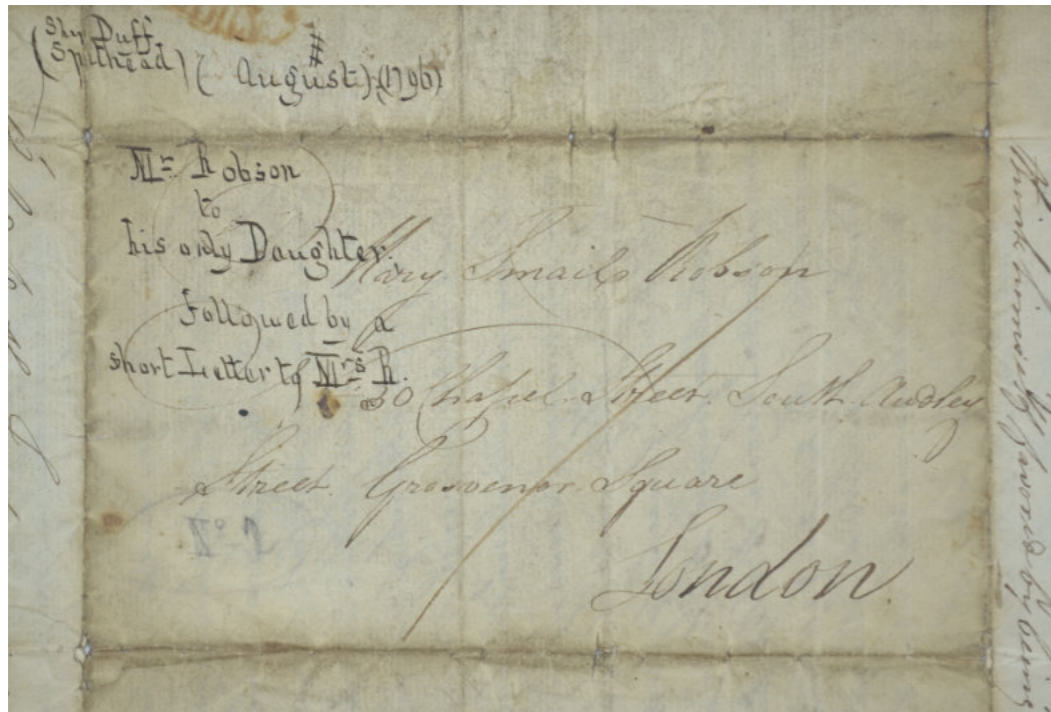 (Ship Duff
Spithead) (August) (1796)
Mr. Robson
to
his only Daughter.
Followed by a
short Letter to Mrs R.
Mary Smails Robson
30 Chapel Street South Audley
Street Grosvenor Square
London.
think himself favored by being